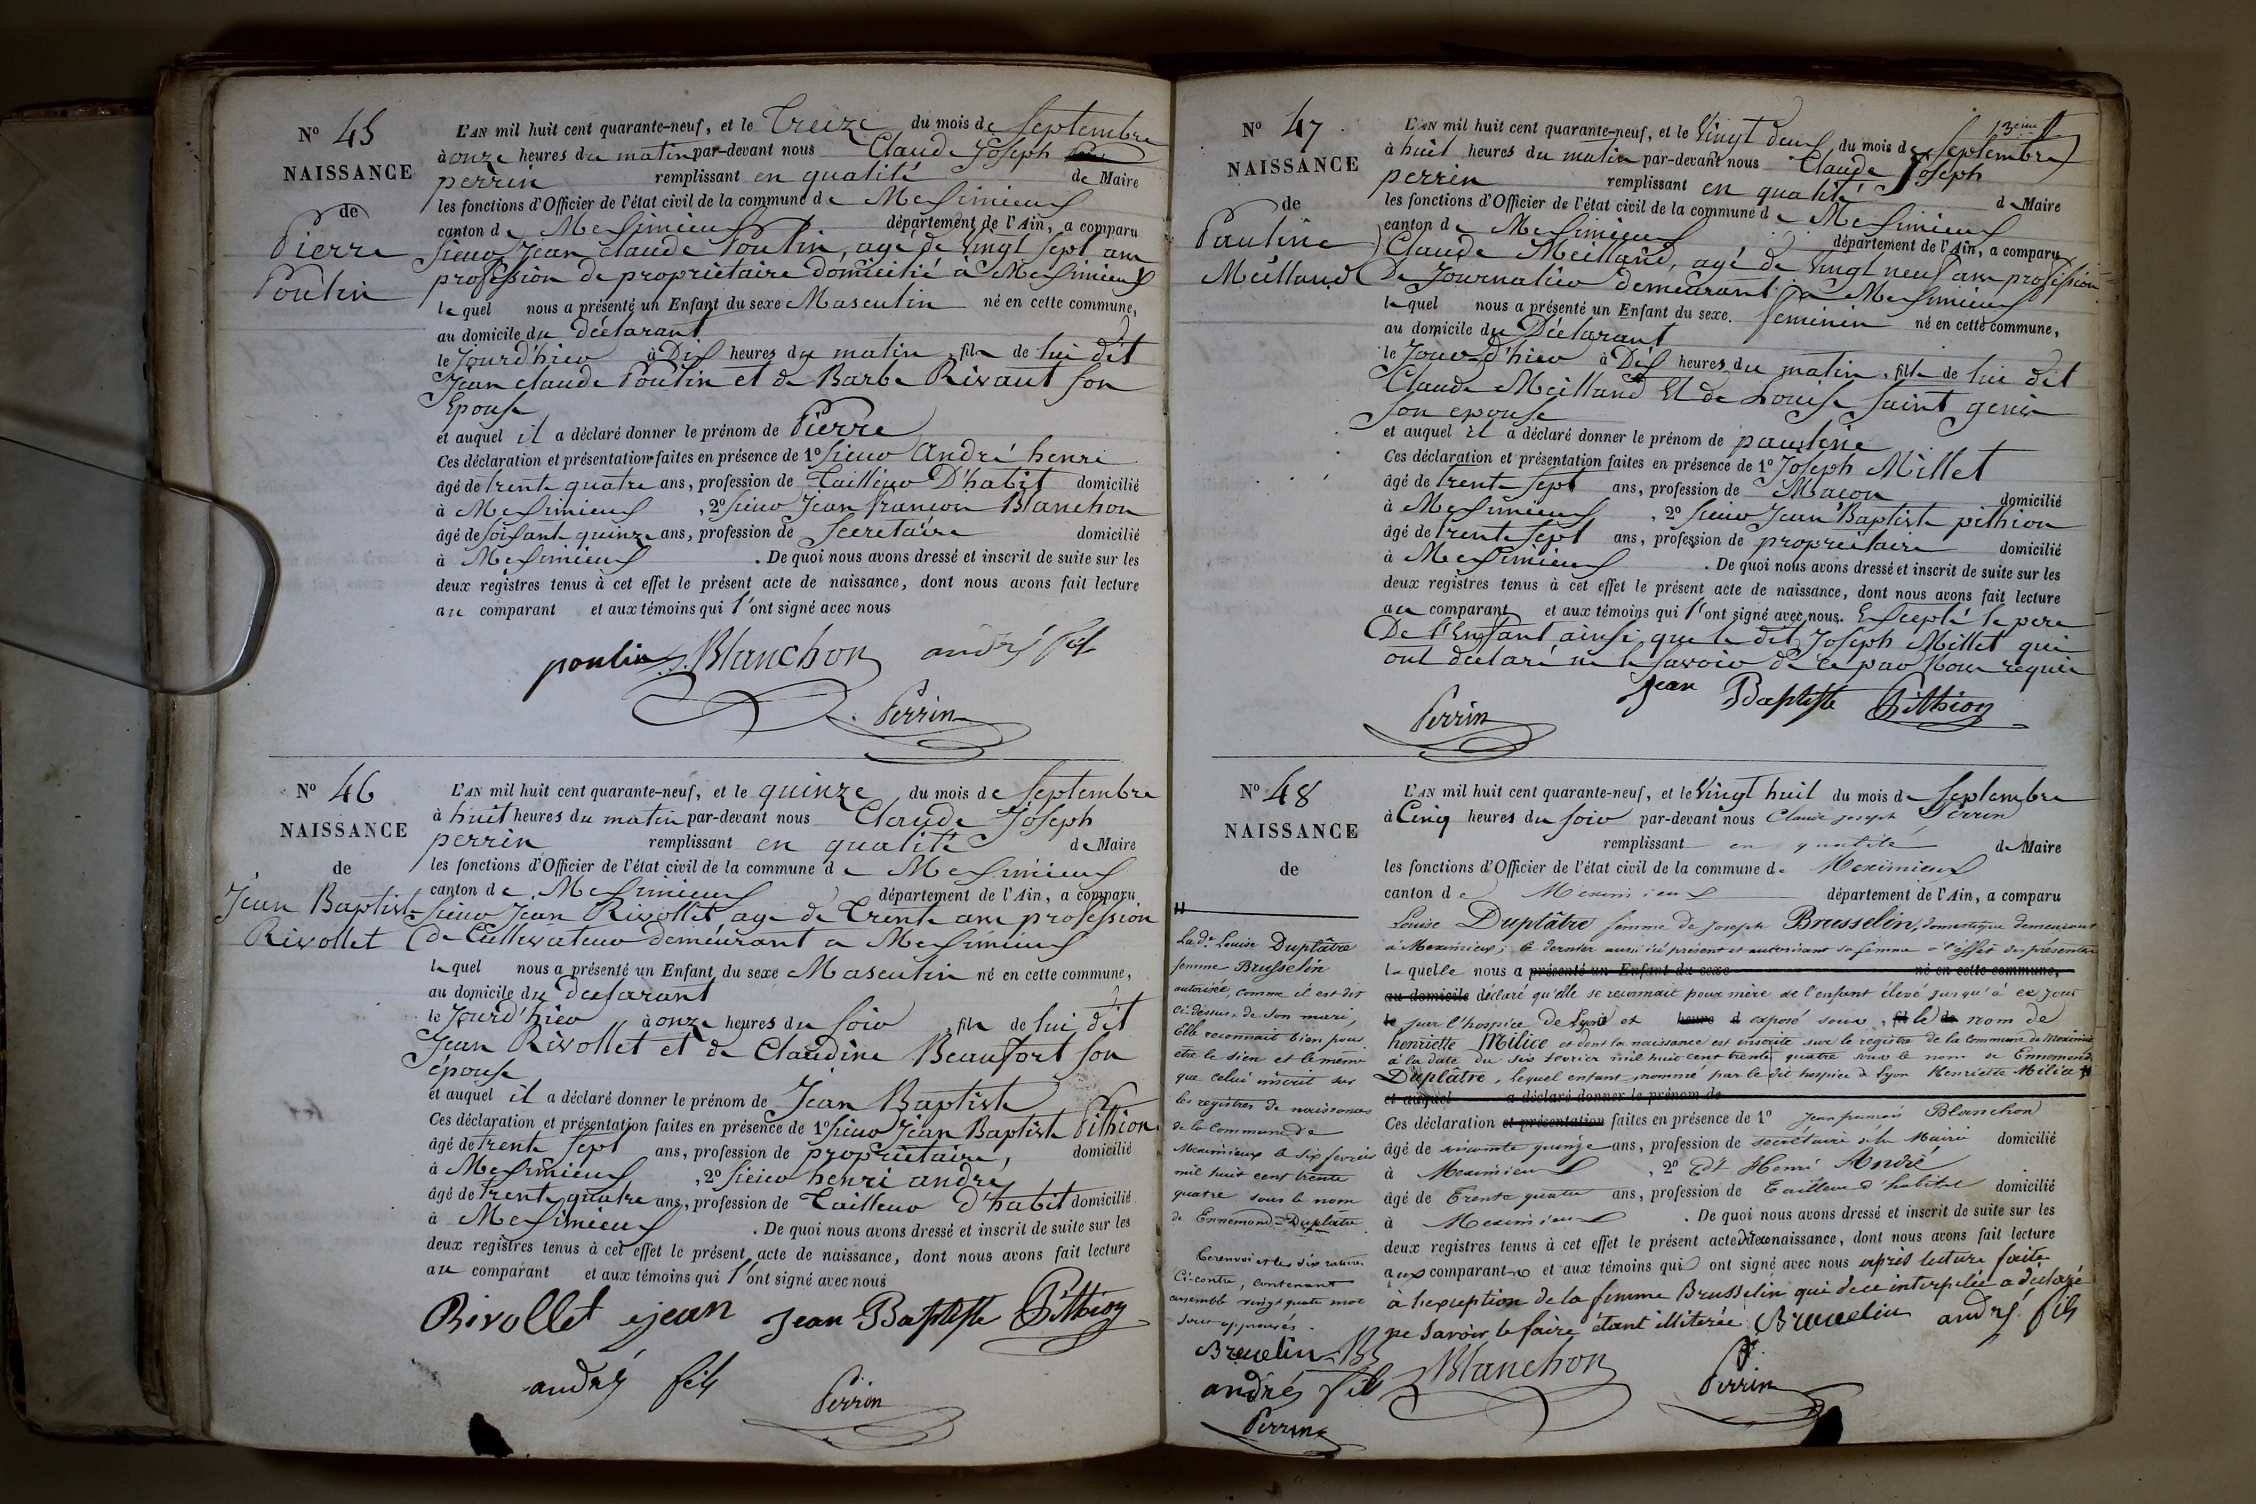 N° 45
NAISSANCE
de
Pierre
Poulin
L'AN mil huit cent quarante-neuf, et le Treize du mois de Septembre
à onze heures du matin par-devant nous Claude Joseph
perrin remplissant en qualité de Maire
les fonctions d'Officier de l'état civil de la commune de Meximieux
canton de Meximieux département de l'Ain, a comparu
Sieur Jean claude Poulin, agé de vingt sept ans
profession de propriétaire domicilié à Meximieux
lequel nous a présenté un Enfant du sexe Masculin né en cette commune,
au domicile du déclarant
le Jourd'hier à Dix heures du matin, fils de lui dit
Jean claude Poulin et de Barbe Rivaut son
Epouse
et auquel il a déclaré donner le prénom de Pierre
Ces déclaration et présentation faites en présence de 1° Sieur André henri
âgé de trente quatre ans, profession de Tailleur D'habit domicilié
à Meximieux, 2° Sieur Jean francois Blanchon
âgé de soixante quinze ans, profession de Secretaire domicilié
à Meximieux. De quoi nous avons dressé et inscrit de suite sur les
deux registres tenus à cet effet le présent acte de naissance, dont nous avons fait lecture
au comparant et aux témoins qui l'ont signé avec nous
poulin Blanchon andré fils
Perrin
N° 46
NAISSANCE
de
Jean Baptiste
Rivollet
L'AN mil huit cent quarante-neuf, et le quinze du mois de Septembre
à huit heures du matin par-devant nous Claude Joseph
perrin remplissant en qualité de Maire
les fonctions d'Officier de l'état civil de la commune de Meximieux
canton de Meximieux département de l'Ain, a comparu
Sieur Jean Rivollet age de Trente ans profession
de Cultivateur demeurant a Meximieux
lequel nous a présenté un Enfant du sexe Masculin né en cette commune,
au domicile du declarant
le Jourd'hier à onze heures du soir, fils de lui dit
Jean Rivollet et de Claudine Beaufort son
épouse
et auquel il a déclaré donner le prénom de Jean Baptiste
Ces déclaration et présentation faites en présence de 1° Sieur Jean Baptiste Pithion
âgé de trente sept ans, profession de propriétaire, domicilié
à Meximieux, 2° Sieur henri andré
âgé de trente quatre ans, profession de Tailleur d'habit domicilié
à Meximieux. De quoi nous avons dressé et inscrit de suite sur les
deux registres tenus à cet effet le présent acte de naissance, dont nous avons fait lecture
au comparant et aux témoins qui l'ont signé avec nous
Rivollet jean Jean Baptiste Pithion
andré fils Perrin
13eme
N° 47
NAISSANCE
de
Pauline
Meilland
L'AN mil huit cent quarante-neuf, et le vingt deux du mois de Septembre
à huit heures du matin par-devant nous Claude Joseph
perrin remplissant en qualité de Maire
les fonctions d'Officier de l'état civil de la commune de Meximieux
canton de Meximieux département de l'Ain, a comparu
Claude Meilland, agé de vingt neuf ans profession
De Journalier demeurant a Meximieux
lequel nous a présenté un Enfant du sexe feminin né en cette commune,
au domicile du Déclarant
le Jour d'hier à Dix heures du matin, fille de lui dit
Claude Meilland Et de Louise Saint genis
son epouse
et auquel il a déclaré donner le prénom de pauline
Ces déclaration et présentation faites en présence de 1° Joseph Millet
âgé de trente sept ans, profession de Maçon domicilié
à Meximieux, 2° Sieur Jean Baptiste pithion
âgé de trente sept ans, profession de propriétaire domicilié
à Meximieux. De quoi nous avons dressé et inscrit de suite sur les
deux registres tenus à cet effet le présent acte de naissance, dont nous avons fait lecture
au comparant et aux témoins qui l'ont signé avec nous. Excepté le pere
De l'Enfant ainsi que le dit Joseph Millet qui
ont declaré ne le savoir de ce par Nous requis
Jean Baptiste Pithion
Perrin
N° 48
NAISSANCE
de
L'AN mil huit cent quarante-neuf, et le vingt huit du mois de Septembre
à Cinq heures du soir par-devant nous Claude joseph Perrin
remplissant en qualité de Maire
les fonctions d'Officier de l'état civil de la commune de Meximieux
canton de Meximieux département de l'Ain, a comparu
Louise Duplâtre femme de joseph Brusselin, domestique demeurant
à Meximieux, ce dernier aussi ici présent et autorisant sa femme à l'effet des présentes
laquelle nous a présenté un Enfant du sexe né en cette commune,
au domicile déclaré qu'elle se reconnait pour mère de l'enfant élevé jusqu'à ce jour
le par l'hospice de Lyon et heure d exposé sous, fil le de nom de
henriette Milice et dont la naissance est inscrite sur le registre de la commune de Meximieux
à la date du six fevrier mil huit cent trente quatre sous le nom de Ennemond
Duplâtre, lequel enfant, nommé par le dit hospice de Lyon Henriette Milice #
et auquel a déclaré donner le prénom de
Ces déclaration et présentation faites en présence de 1° Jean francois Blanchon
âgé de soixante quinze ans, profession de secrétaire de la Mairie domicilié
à Meximieux, 2° Et Henri André
âgé de Trente quatre ans, profession de Tailleur d'habits domicilié
à Meximieux. De quoi nous avons dressé et inscrit de suite sur les
deux registres tenus à cet effet le présent acte de reconnaissance, dont nous avons fait lecture
aux comparants et aux témoins qui ont signé avec nous après lecture faite
à l'exception de la femme Brusselin qui de ce interpelée a déclaré
ne savoir le faire étant illitérée Brusselin andré fils
Blanchon Perrin
#
La de Louise Duplâtre
femme Brusselin
autorisée, comme il est dit
ci-dessus, de son mari,
Elle reconnait bien pour
être le sien et le même
que celui inscrit sur
les registres de naissances
de la commune de
Meximieux le six fevrier
mil huit cent trente
quatre sous le nom
de Ennemond Duplâtre
Ce renvoi et les dix ratures
Ci-contre, contenant
ensemble vingt quatre mots
sont approuvés.
Brusselin B
andré fils
Perrin